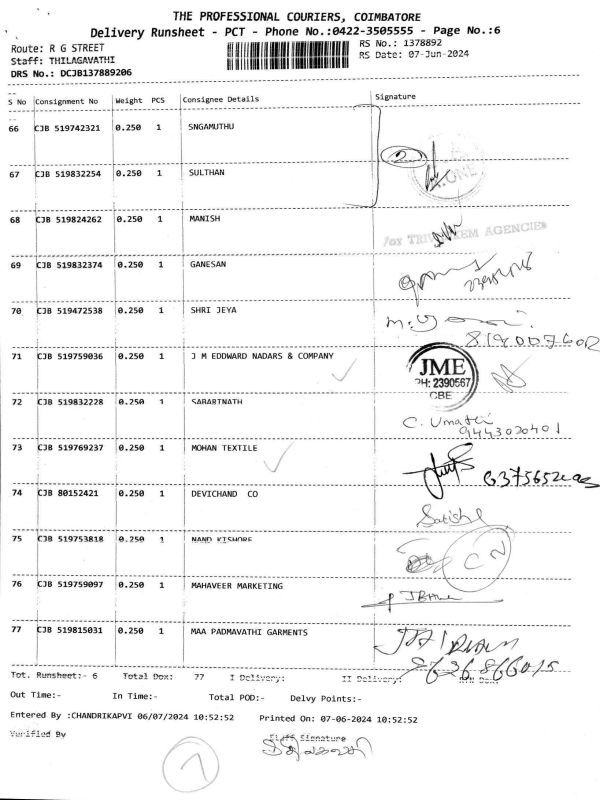 THE PROFESSIONAL COURIERS, COIMBATORE
Delivery Runsheet - PCT - Phone No.:0422-3505555 - Page No.:6
Route: R G STREET
RS No.: 1378892
Staff: THILAGAVATHI
RS Date: 07-Jun-2024
DRS No.: DCJB137889206
S No Consignment No Weight PCS Consignee Details Signature
66 CJB 519742321 0.250 1 SNGAMUTHU
67 CJB 519832254 0.250 1 SULTHAN
68 CJB 519824262 0.250 1 MANISH
AGENCIES
69 CJB 519832374 0.250 1 GANESAN
70 CJB 519472538 0.250 1 SHRI JEYA
71 CJB 519759036 0.250 1 J M EDDWARD NADARS & COMPANY
JME
PH: 2390567
CBE
72 CJB 519832228 0.250 1 SABARINATH
C. Umather
9443020401
73 CJB 519769237 0.250 1 MOHAN TEXTILE
74 CJB 80152421 0.250 1 DEVICHAND CO
Satish
75 CJB 519753818 0.250 1 NAND KISHORE
76 CJB 519759097 0.250 1 MAHAVEER MARKETING
77 CJB 519815031 0.250 1 MAA PADMAVATHI GARMENTS
Tot. Runsheet:- 6 Total Dox: 77 I Delivery: II Delivery:
Out Time:- In Time:- Total POD:- Delvy Points:-
Entered By :CHANDRIKAPVI 06/07/2024 10:52:52 Printed On: 07-06-2024 10:52:52
Verified By
Staff Signature